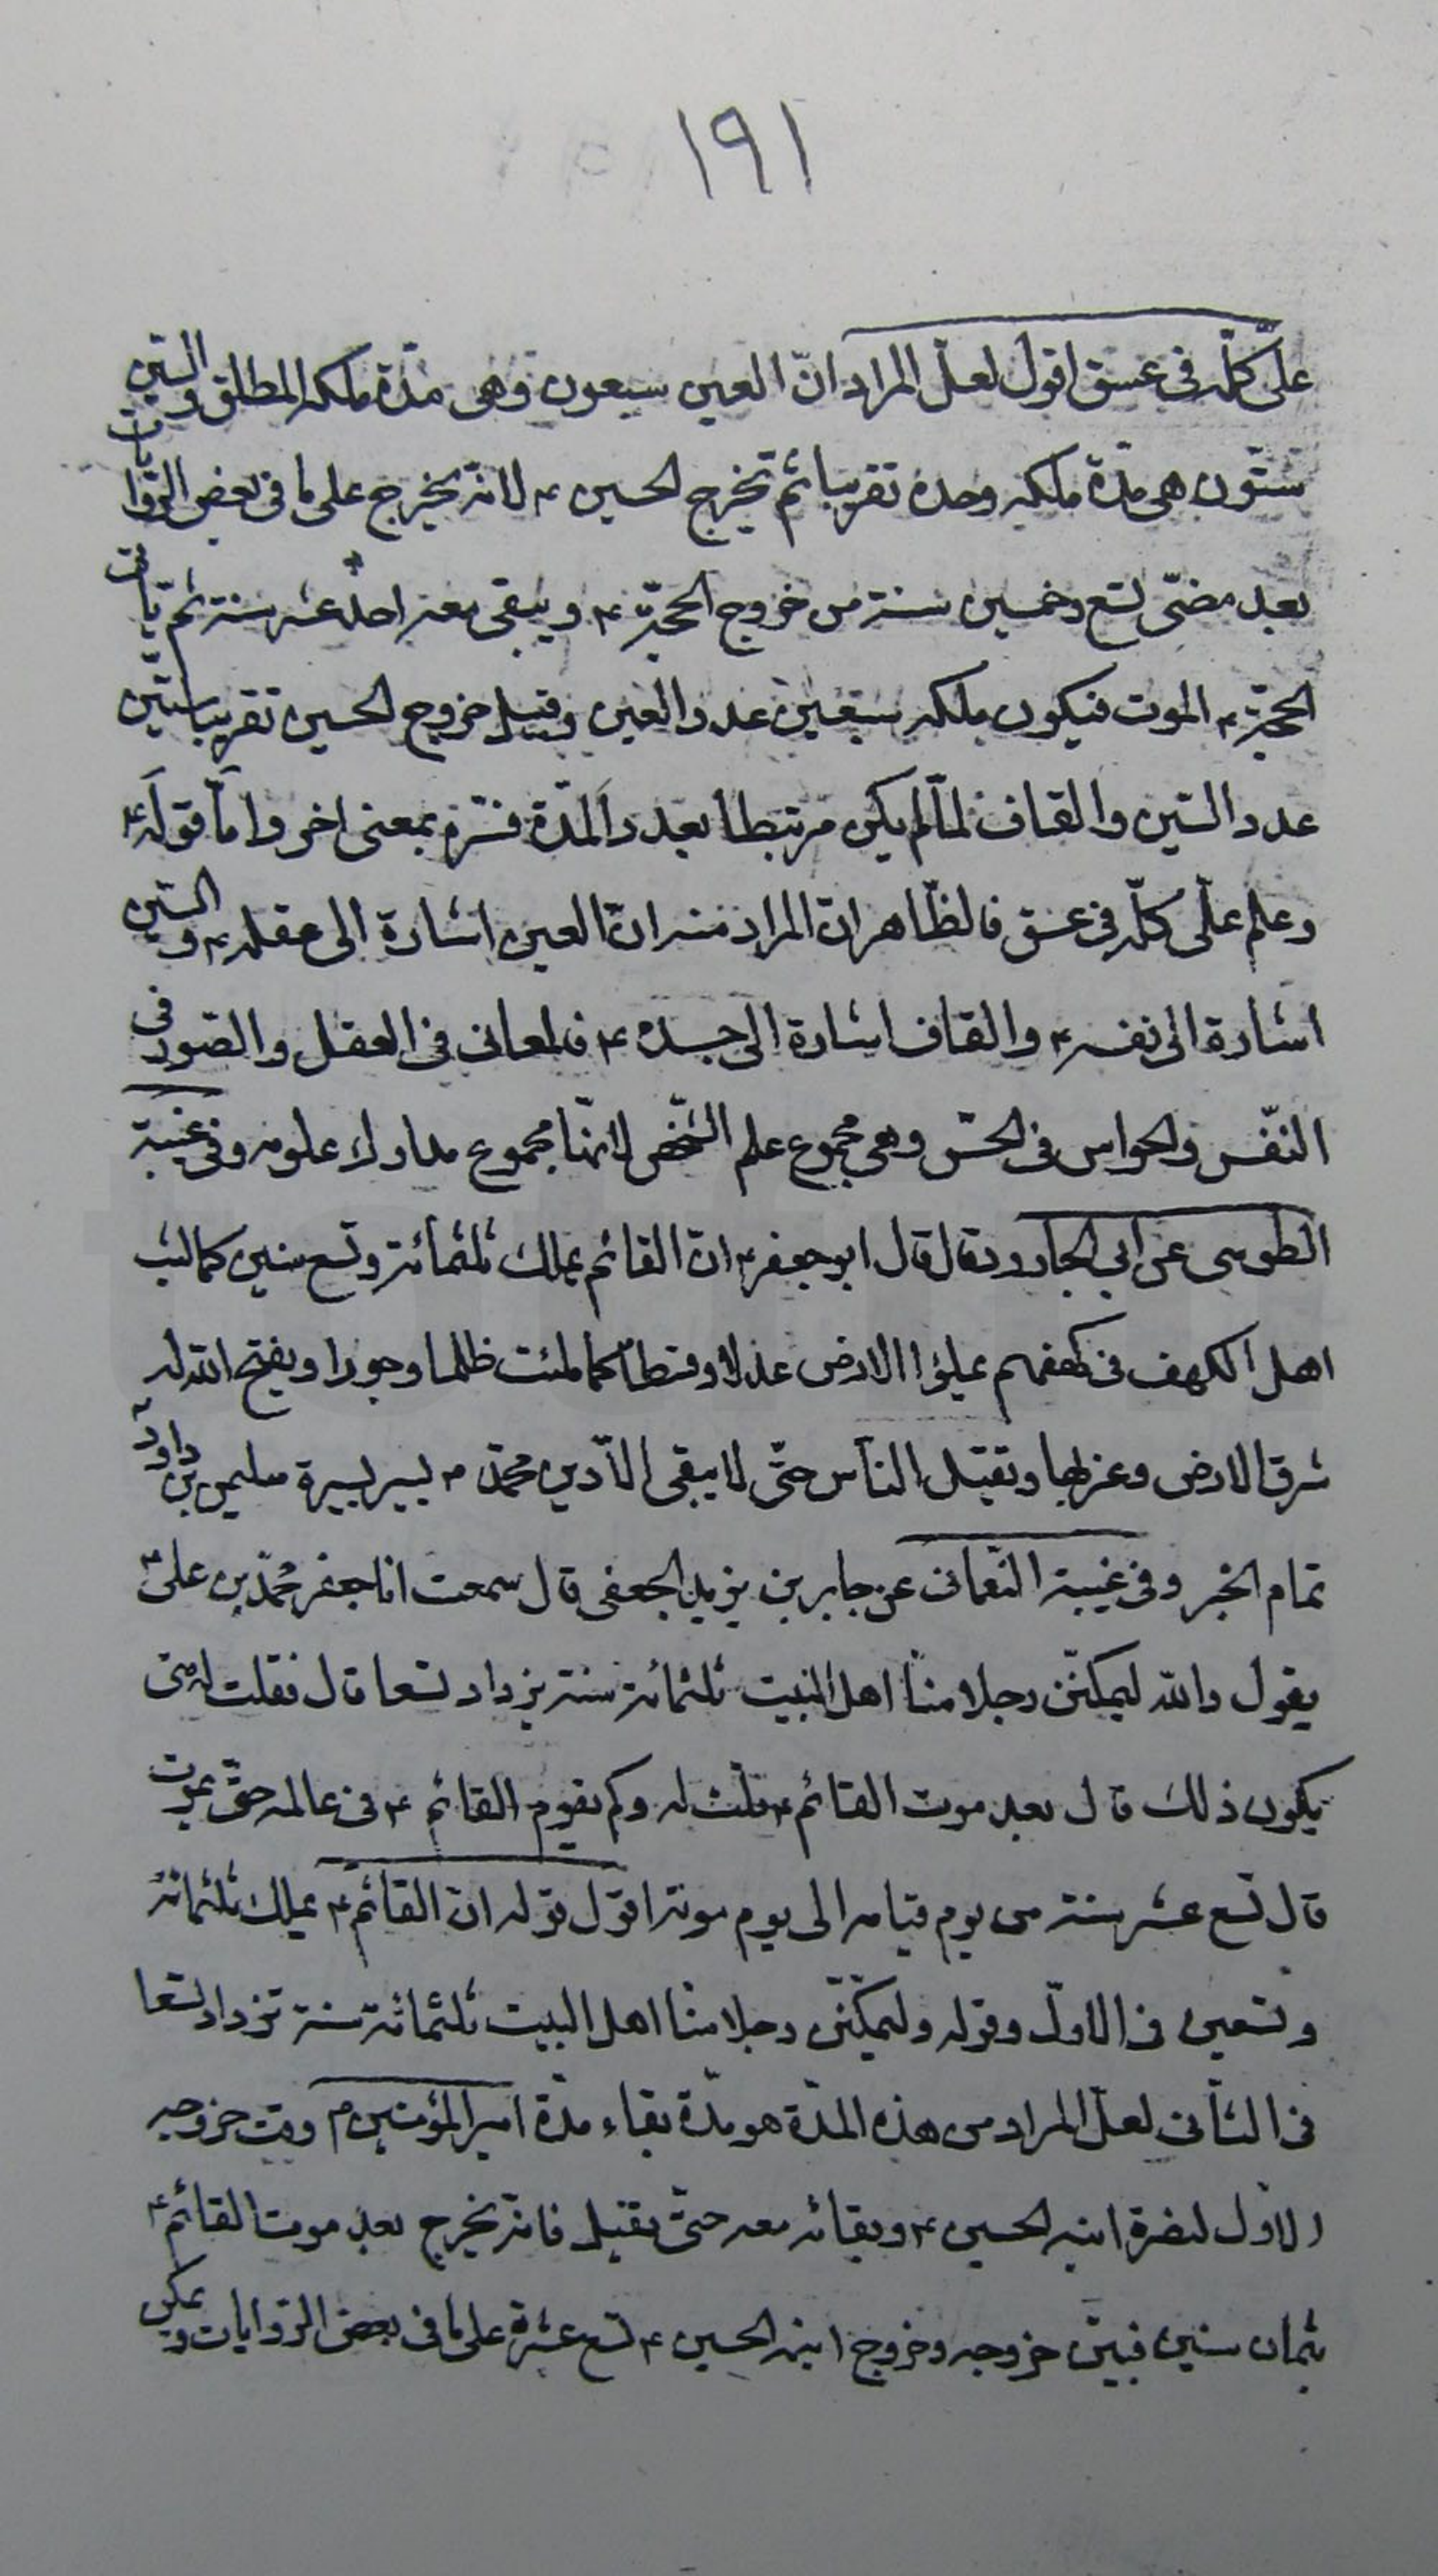 ١٩١
علىّ كلّه فى عسق اقول لعلّ المراد انّ العين سبعون وهى مدّة ملكه المطلق والسّين
ستّون هى مدّة ملكه وحده تقريبا ثم يخرج الحسين ٤ لانه يخرج على ما فى بعض الرّوايات
بعد مضىّ تسع وخمسين سنة من خروج الحجّة ٤ ويبقى معه احد عشر سنة ثم يأت
الحجّة ٤ الموت فيكون ملكه سبعين عدد العين وقبل خروج الحسين تقريبا ستّين
عدد السّين والقاف لمّا لم يكن مرتبطا بعدد المدّة فسّره بمعنى اخر وامّا قوله ٤
وعلم علىّ كلّه فى عسق فالظّاهر انّ المراد منه انّ العين اشارة الى عقله ٤ والسّين
اشارة الى نفسه ٤ والقاف اشارة الى جسده ٤ فالمعانى فى العقل والصّور فى
النّفس والحواس فى الحسّ وهى مجموع علم الشّخص لانّها مجموع مدارك علومه وفى غيبة
الطّوسى عن ابى الجارود قال قال ابو جعفر ٤ انّ القائم يملك ثلثمائة وتسع سنين كما لبث
اهل الكهف فى كهفهم يملؤا الارض عدلا وقسطا كما ملئت ظلما وجورا ويفتح الله له
شرق الارض وغربها ويقتل النّاس حتّى لا يبقى الّا دين محمّد ٣ يسير بسيرة سليمن بن داود ٤
تمام الخبر وفى غيبة النّعمانى عن جابر بن يزيد الجعفى قال سمعت ابا جعفر محمّد بن على ٤
يقول والله ليملكنّ رجلا منّا اهل البيت ثلثمائة سنة يزداد تسعا قال فقلت له متى
يكون ذلك قال بعد موت القائم ٤ قلت له وكم يقوم القائم ٤ فى عالمه حتّى يموت
قال تسع عشر سنة من يوم قيامه الى يوم موته اقول قوله ان القائم ٤ يملك ثلثمائة
وتسعين فى الاوّل وقوله وليملكنّ رجلا منّا اهل البيت ثلثمائة سنة تزداد تسعا
فى الثّانى لعلّ المراد من هذه المدّة هو مدّة بقاء مدّة امير المؤمنين ٤ وقت خروجه
الاوّل لنصرة ابنه الحسين ٤ وبقائه معه حتّى يقتل فانّه يخرج بعد موت القائم ٤
بثمان سنين فبين خروجه وخروج ابنه الحسين ٤ تسع عشرة على ما فى بعض الرّوايات ويمكن